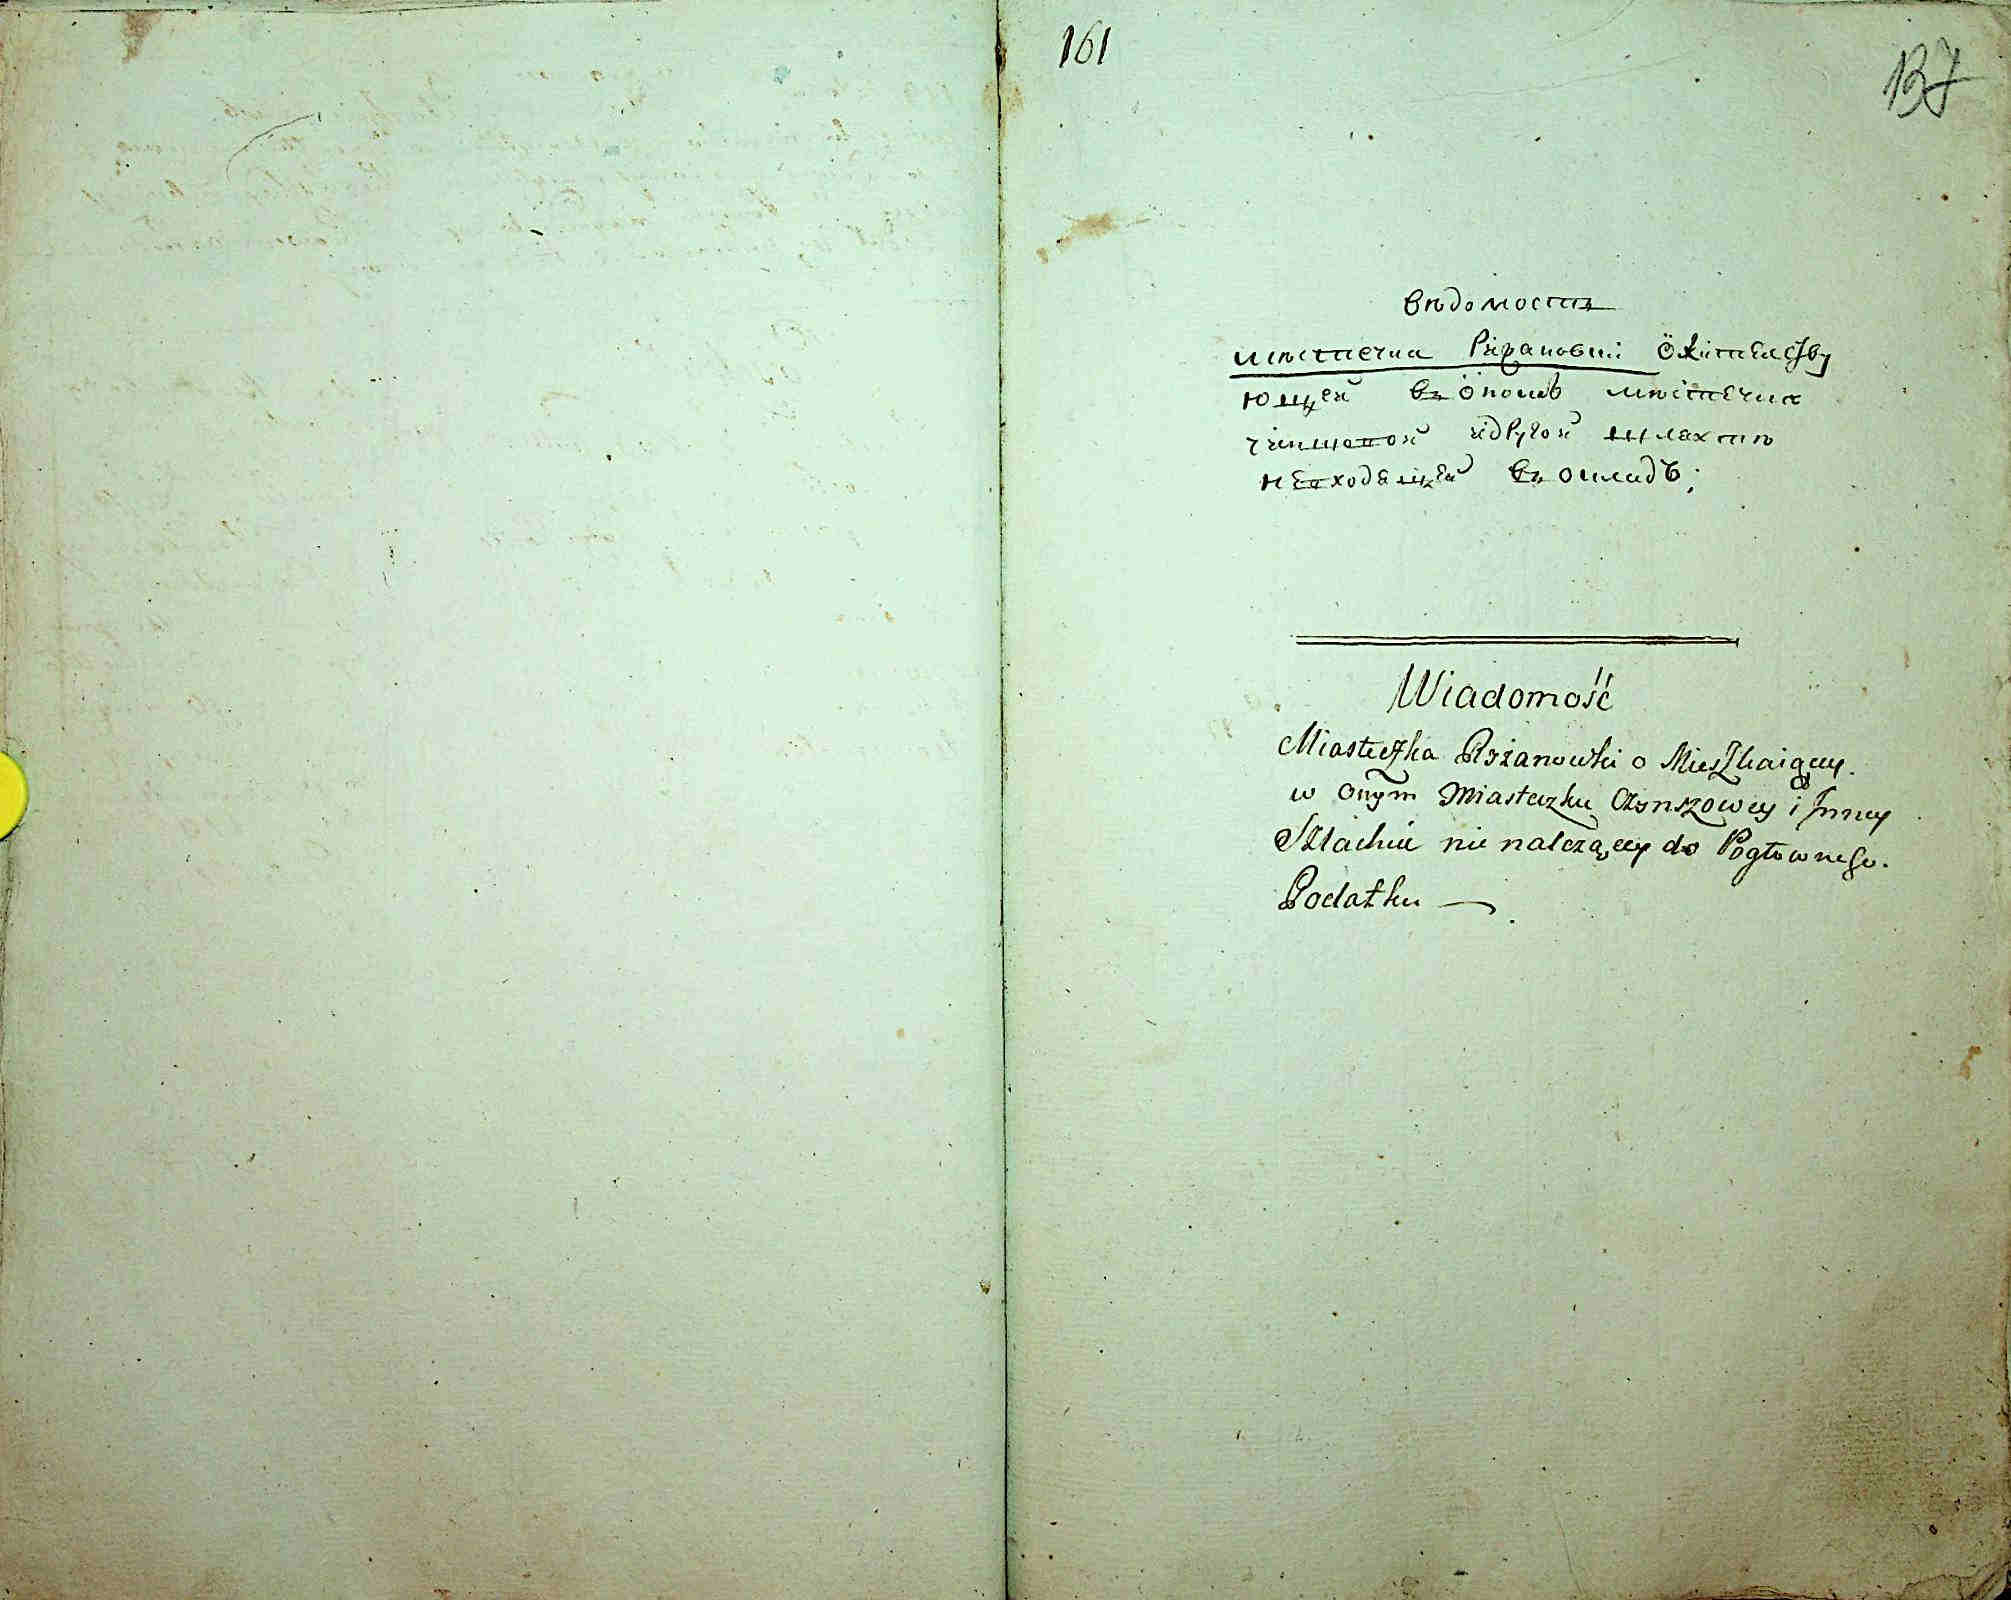 161
137
вѣдомость
мѣстечка Ржановки ожителству
ющей въ ономъ мѣстечкѣ
чиншевой идругой шляхтѣ
невходящей въ окладъ;
Wiadomość
Miasteczka Rżanowki o Mieszkaiącey
w onym Miasteczku Czynszowey i Inney
Szlachcie nie należącey do Pogłownego.
Podatku —